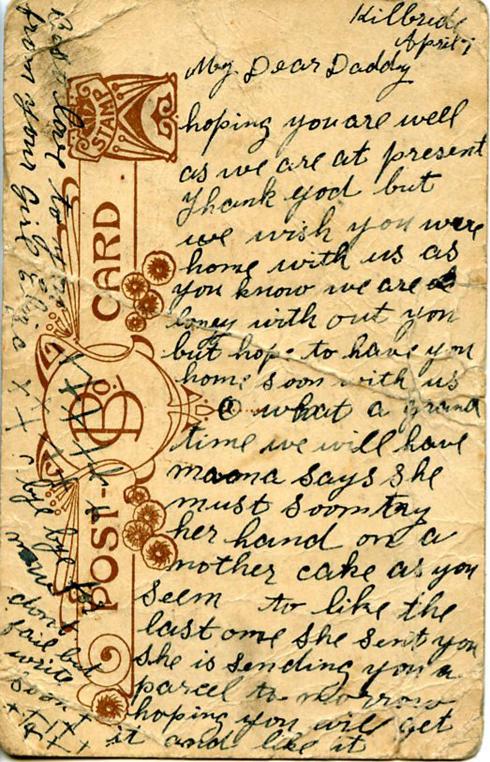 Kilbride
April 7
My Dear Daddy
hoping you are well
as we are at present
Thank god but
we wish you were
home with us as
you know we are
loney with out you
but hope to have you
home soon with us
O what a grand
time we will have
mama says she
must soon try
her hand on a
nother cake as you
seem to like the
last one she sent you
she is sending you a
parcel to morrow
hoping you will get
it and like it
STAMP
POST-CARD
B Co.
Best love to
from your Girl
bye bye
dont
fail but
write
soon